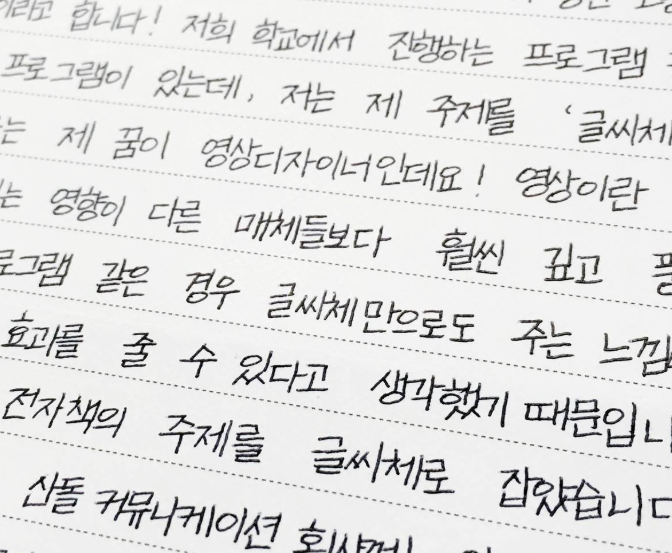 이라고 합니다! 저희 학교에서 진행하는 프로그램
프로그램이 있는데, 저는 제 주제를 '글씨체
는 제 꿈이 영상디자이너인데요! 영상이란
는 영향이 다른 매체들보다 훨씬 깊고
로그램 같은 경우 글씨체만으로도 주는 느낌
효과를 줄 수 있다고 생각했기 때문입니
전자책의 주제를 글씨체로 잡았습니다
산돌 커뮤니케이션 회사께